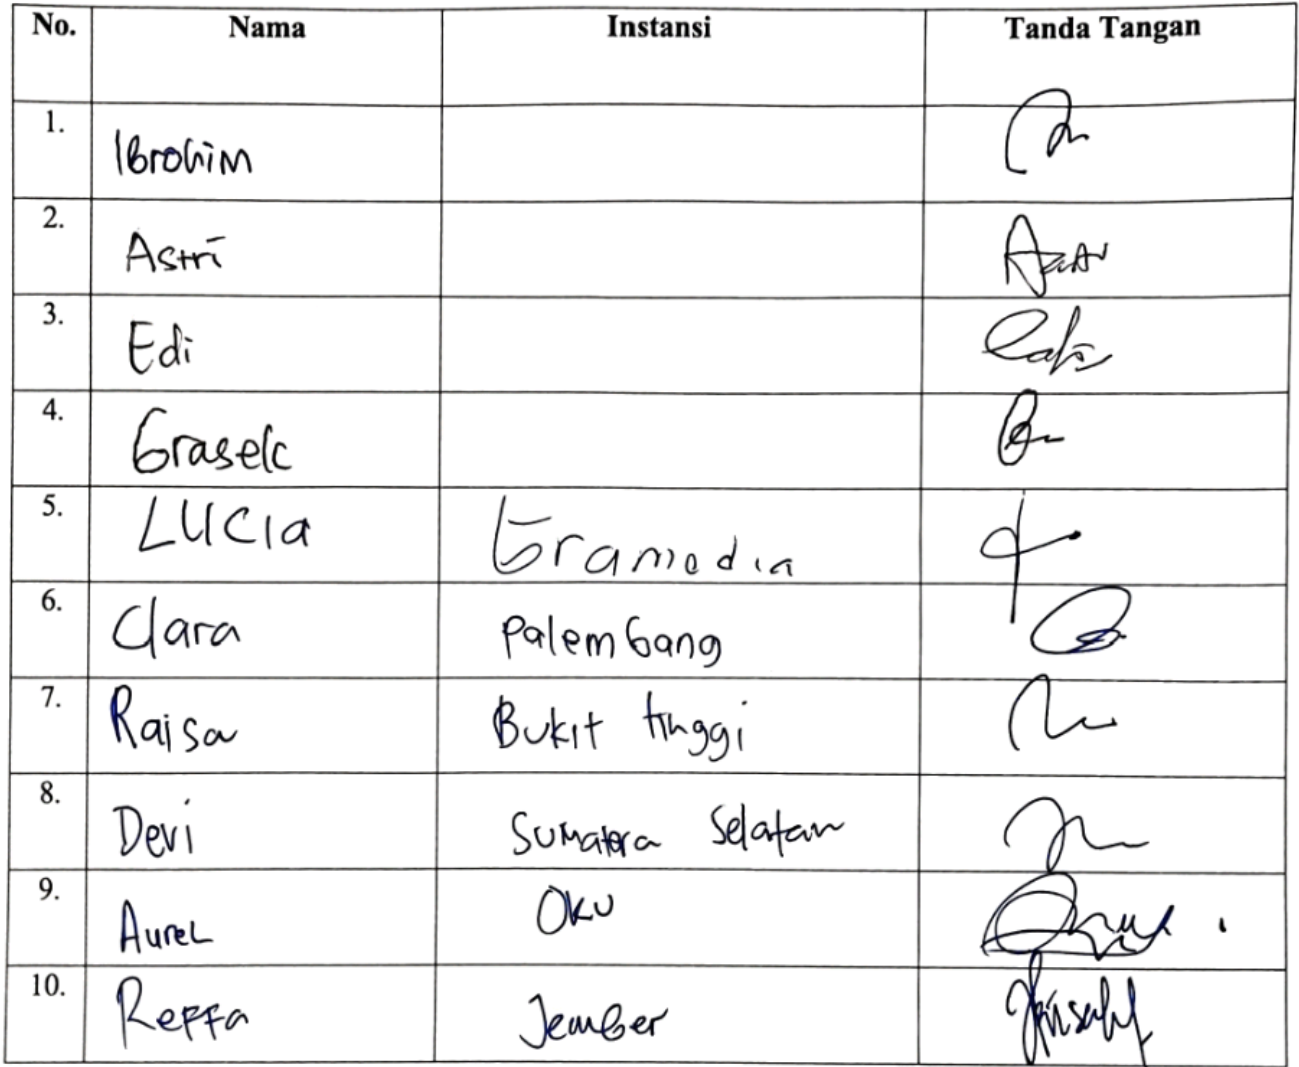 No. Nama Instansi Tanda Tangan
1. Ibrohim
2. Astri
3. Edi
4. Graselc
5. LUCIa Gramedia
6. Clara Palembang
7. Raisa Bukit tinggi
8. Devi Sumatera Selatan
9. Aurel OKU
10. Reffa Jember